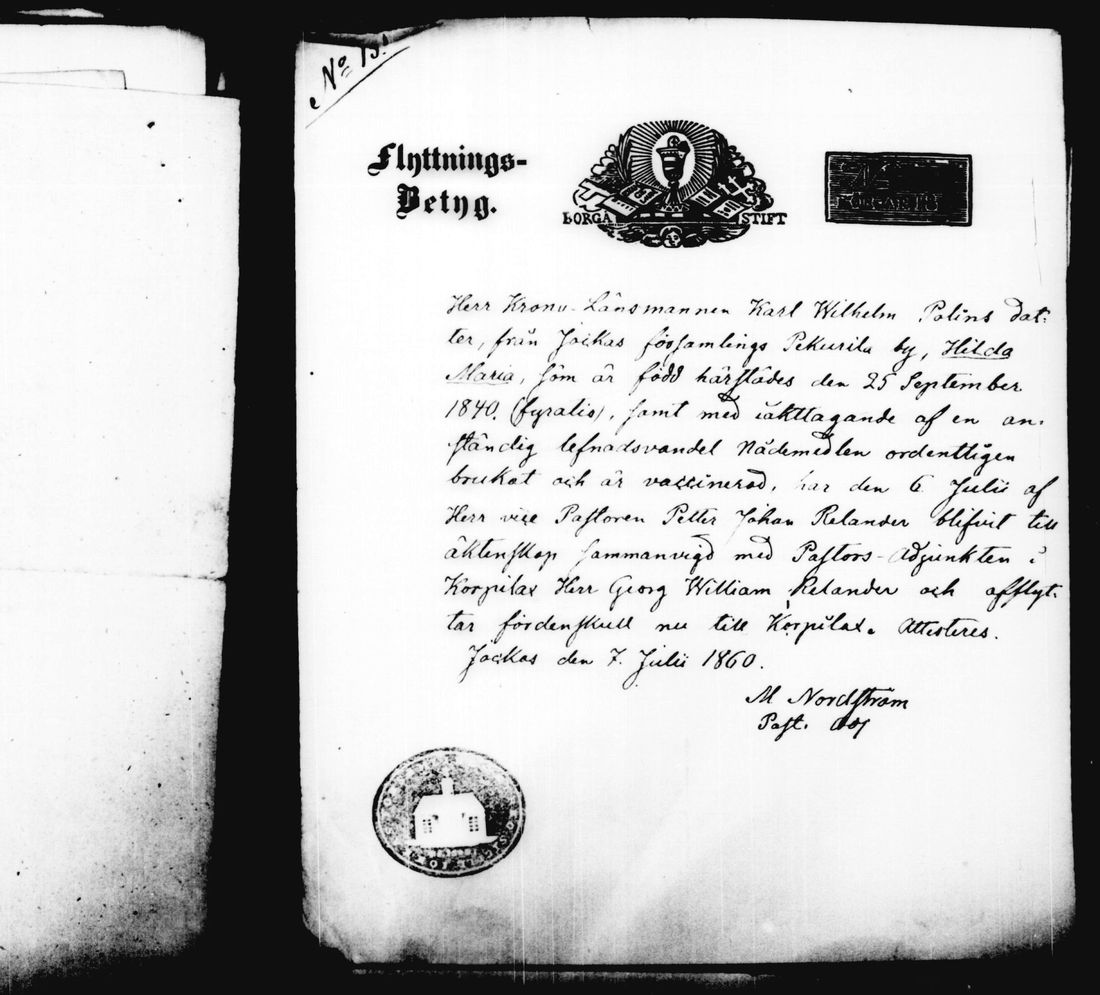 No 15.
Flyttnings-
Betyg.
BORGÅ STIFT
Herr Krono-Länsmannen Karl Wilhelm Polins dot-
ter, från Jockas församlings Pekurila by, Hilda
Maria, som är född härstädes den 25 September
1840. (fyratio), samt med iakttagande af en an-
ständig lefnadsvandel Nådemedlen ordentligen
brukat och är vaccinerad, har den 6 Julii af
Herr vice Pastoren Petter Johan Relander blifvit till
äktenskap sammanvigd med Pastors-Adjunkten i
Korpilax Herr Georg William Relander och afflyt-
tar fördenskull nu till Korpilax. Attesteres.
Jockas den 7. Julii 1860.
M Nordström
Past. Adj